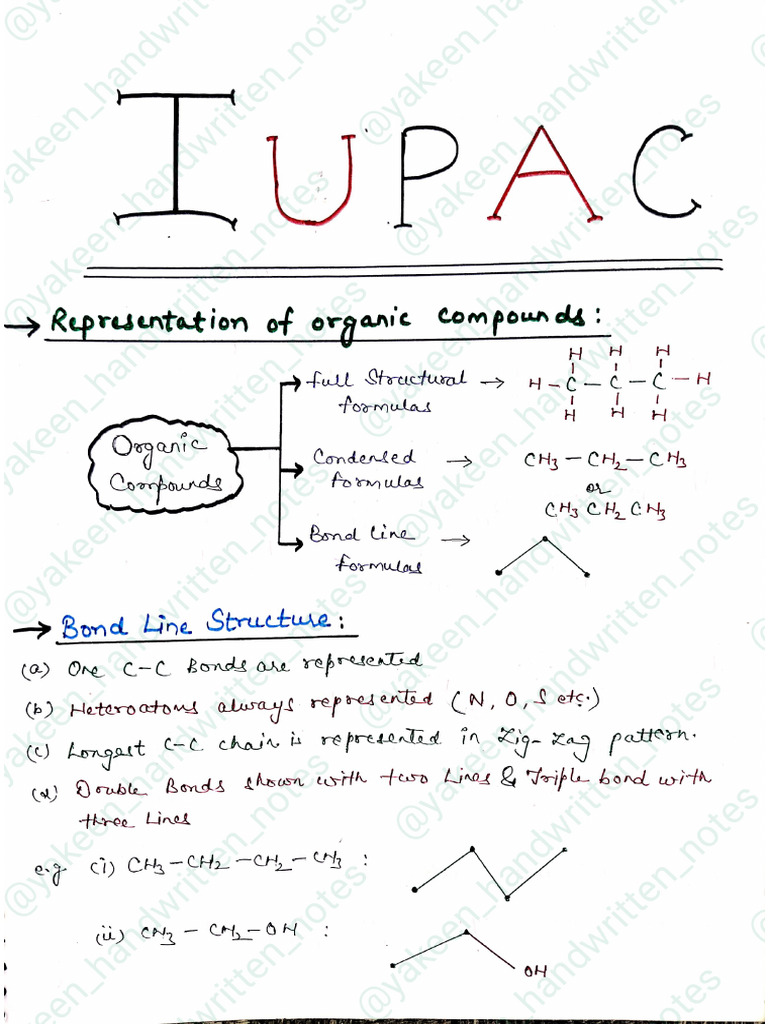 IUPAC
→ Representation of organic compounds:
Organic
Compounds
full Structural → 
formulas
H H H
H – C – C – C – H
H H H
Condensed →
formulas
CH3 – CH2 – CH3
or
CH3 CH2 CH3
Bond Line →
formulas
→ Bond Line Structure:
(a) One C-C Bonds are represented
(b) Heteroatoms always represented (N, O, S etc.)
(c) Longest C-C chain is represented in Zig-Zag pattern.
(d) Double Bonds shown with two Lines & Triple bond with
three Lines
e.g (i) CH3 – CH2 – CH2 – CH3 :
(ii) CH3 – CH2 – OH :
OH
@yakeen_handwritten_notes